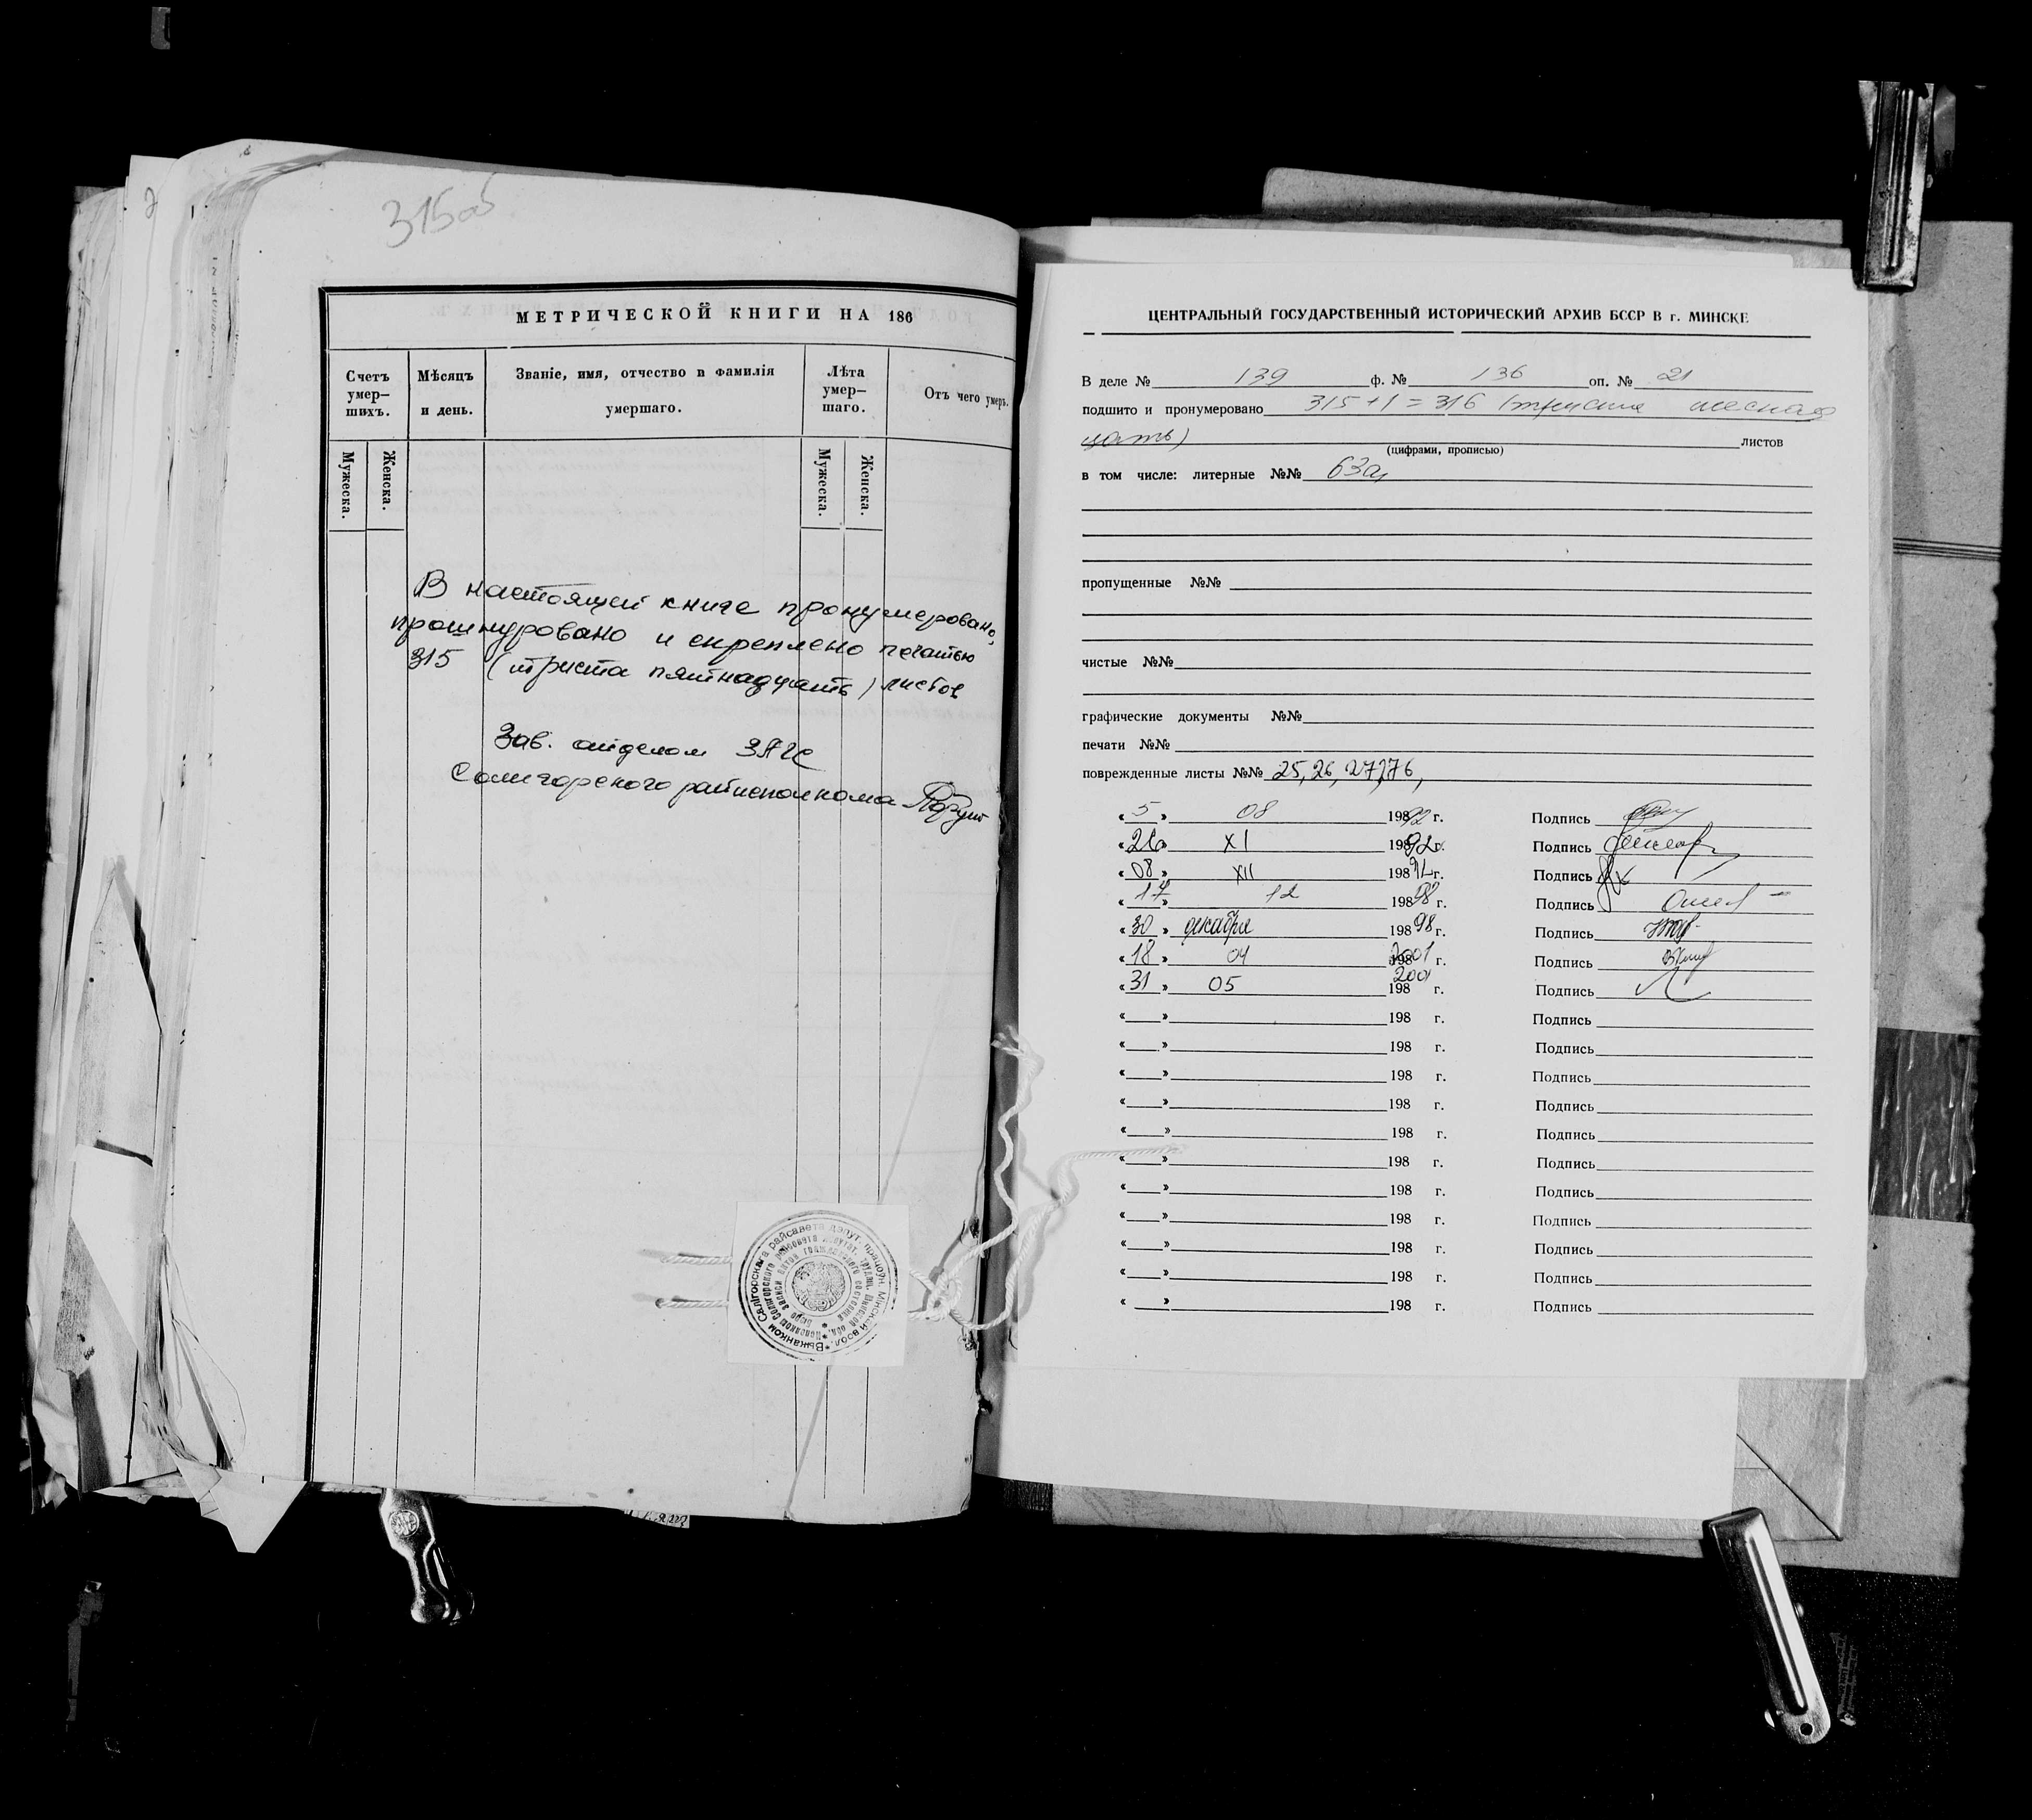 315об
МЕТРИЧЕСКОЙ КНИГИ НА 186
Счетъ умер- шихъ.
Мѣсяцъ и день.
Званіе, имя, отчество и фамилія умершаго.
Лѣта умер- шаго.
Отъ чего умеръ.
Мужеска.
Женска.
Мужеска.
Женска.
В настоящей книге пронумеровано,
прошнуровано и скреплено печатью
315 (триста пятнадцать) листов
Зав. отделом ЗАГС
Солигорского райисполкома
ЦЕНТРАЛЬНЫЙ ГОСУДАРСТВЕННЫЙ ИСТОРИЧЕСКИЙ АРХИВ БССР В г. МИНСКЕ
В деле № 139 ф. № 136 оп. № 21
подшито и пронумеровано 315+1=316 (триста шеснад
цать) листов
(цифрами, прописью)
в том числе: литерные №№ 63а,
пропущенные №№
чистые №№
графические документы №№
печати №№
поврежденные листы №№ 25, 26, 27, 276,
« 5 » 08 19892 г. Подпись
« 26 » XI 19892 г. Подпись
« 08 » XII 198 г. Подпись
« 17 » 12 19898 г. Подпись
« 30 » декабря 19898 г. Подпись
« 18 » 04 198 2001 г. Подпись
« 31 » 05 198 2001 г. Подпись
« » 198 г. Подпись
« » 198 г. Подпись
« » 198 г. Подпись
« » 198 г. Подпись
« » 198 г. Подпись
« » 198 г. Подпись
« » 198 г. Подпись
« » 198 г. Подпись
« » 198 г. Подпись
« » 198 г. Подпись
« » 198 г. Подпись